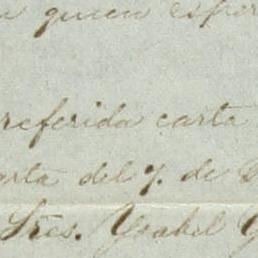 quien esper
referida carta
del 7. de
Sres. Ysabel